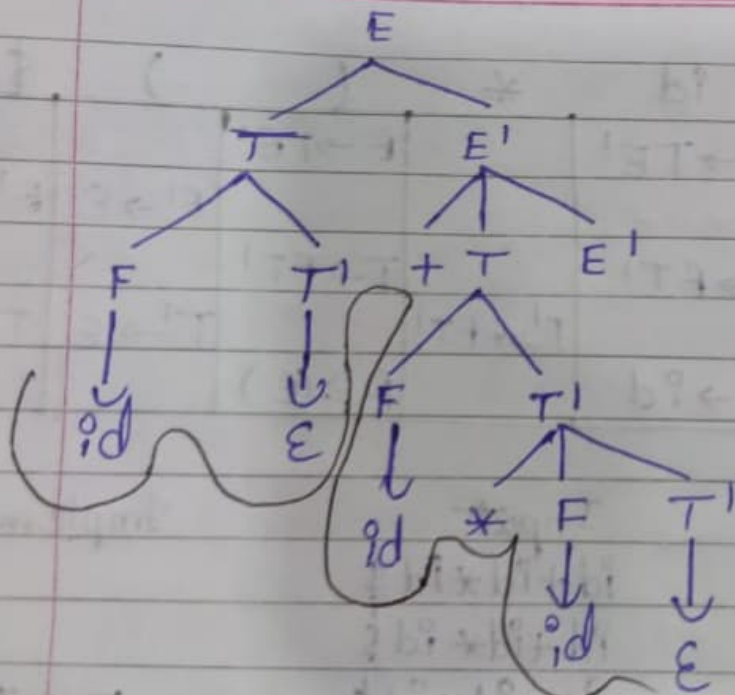 E
T E'
F T' + T E'
id ε F T'
id * F T'
id ε